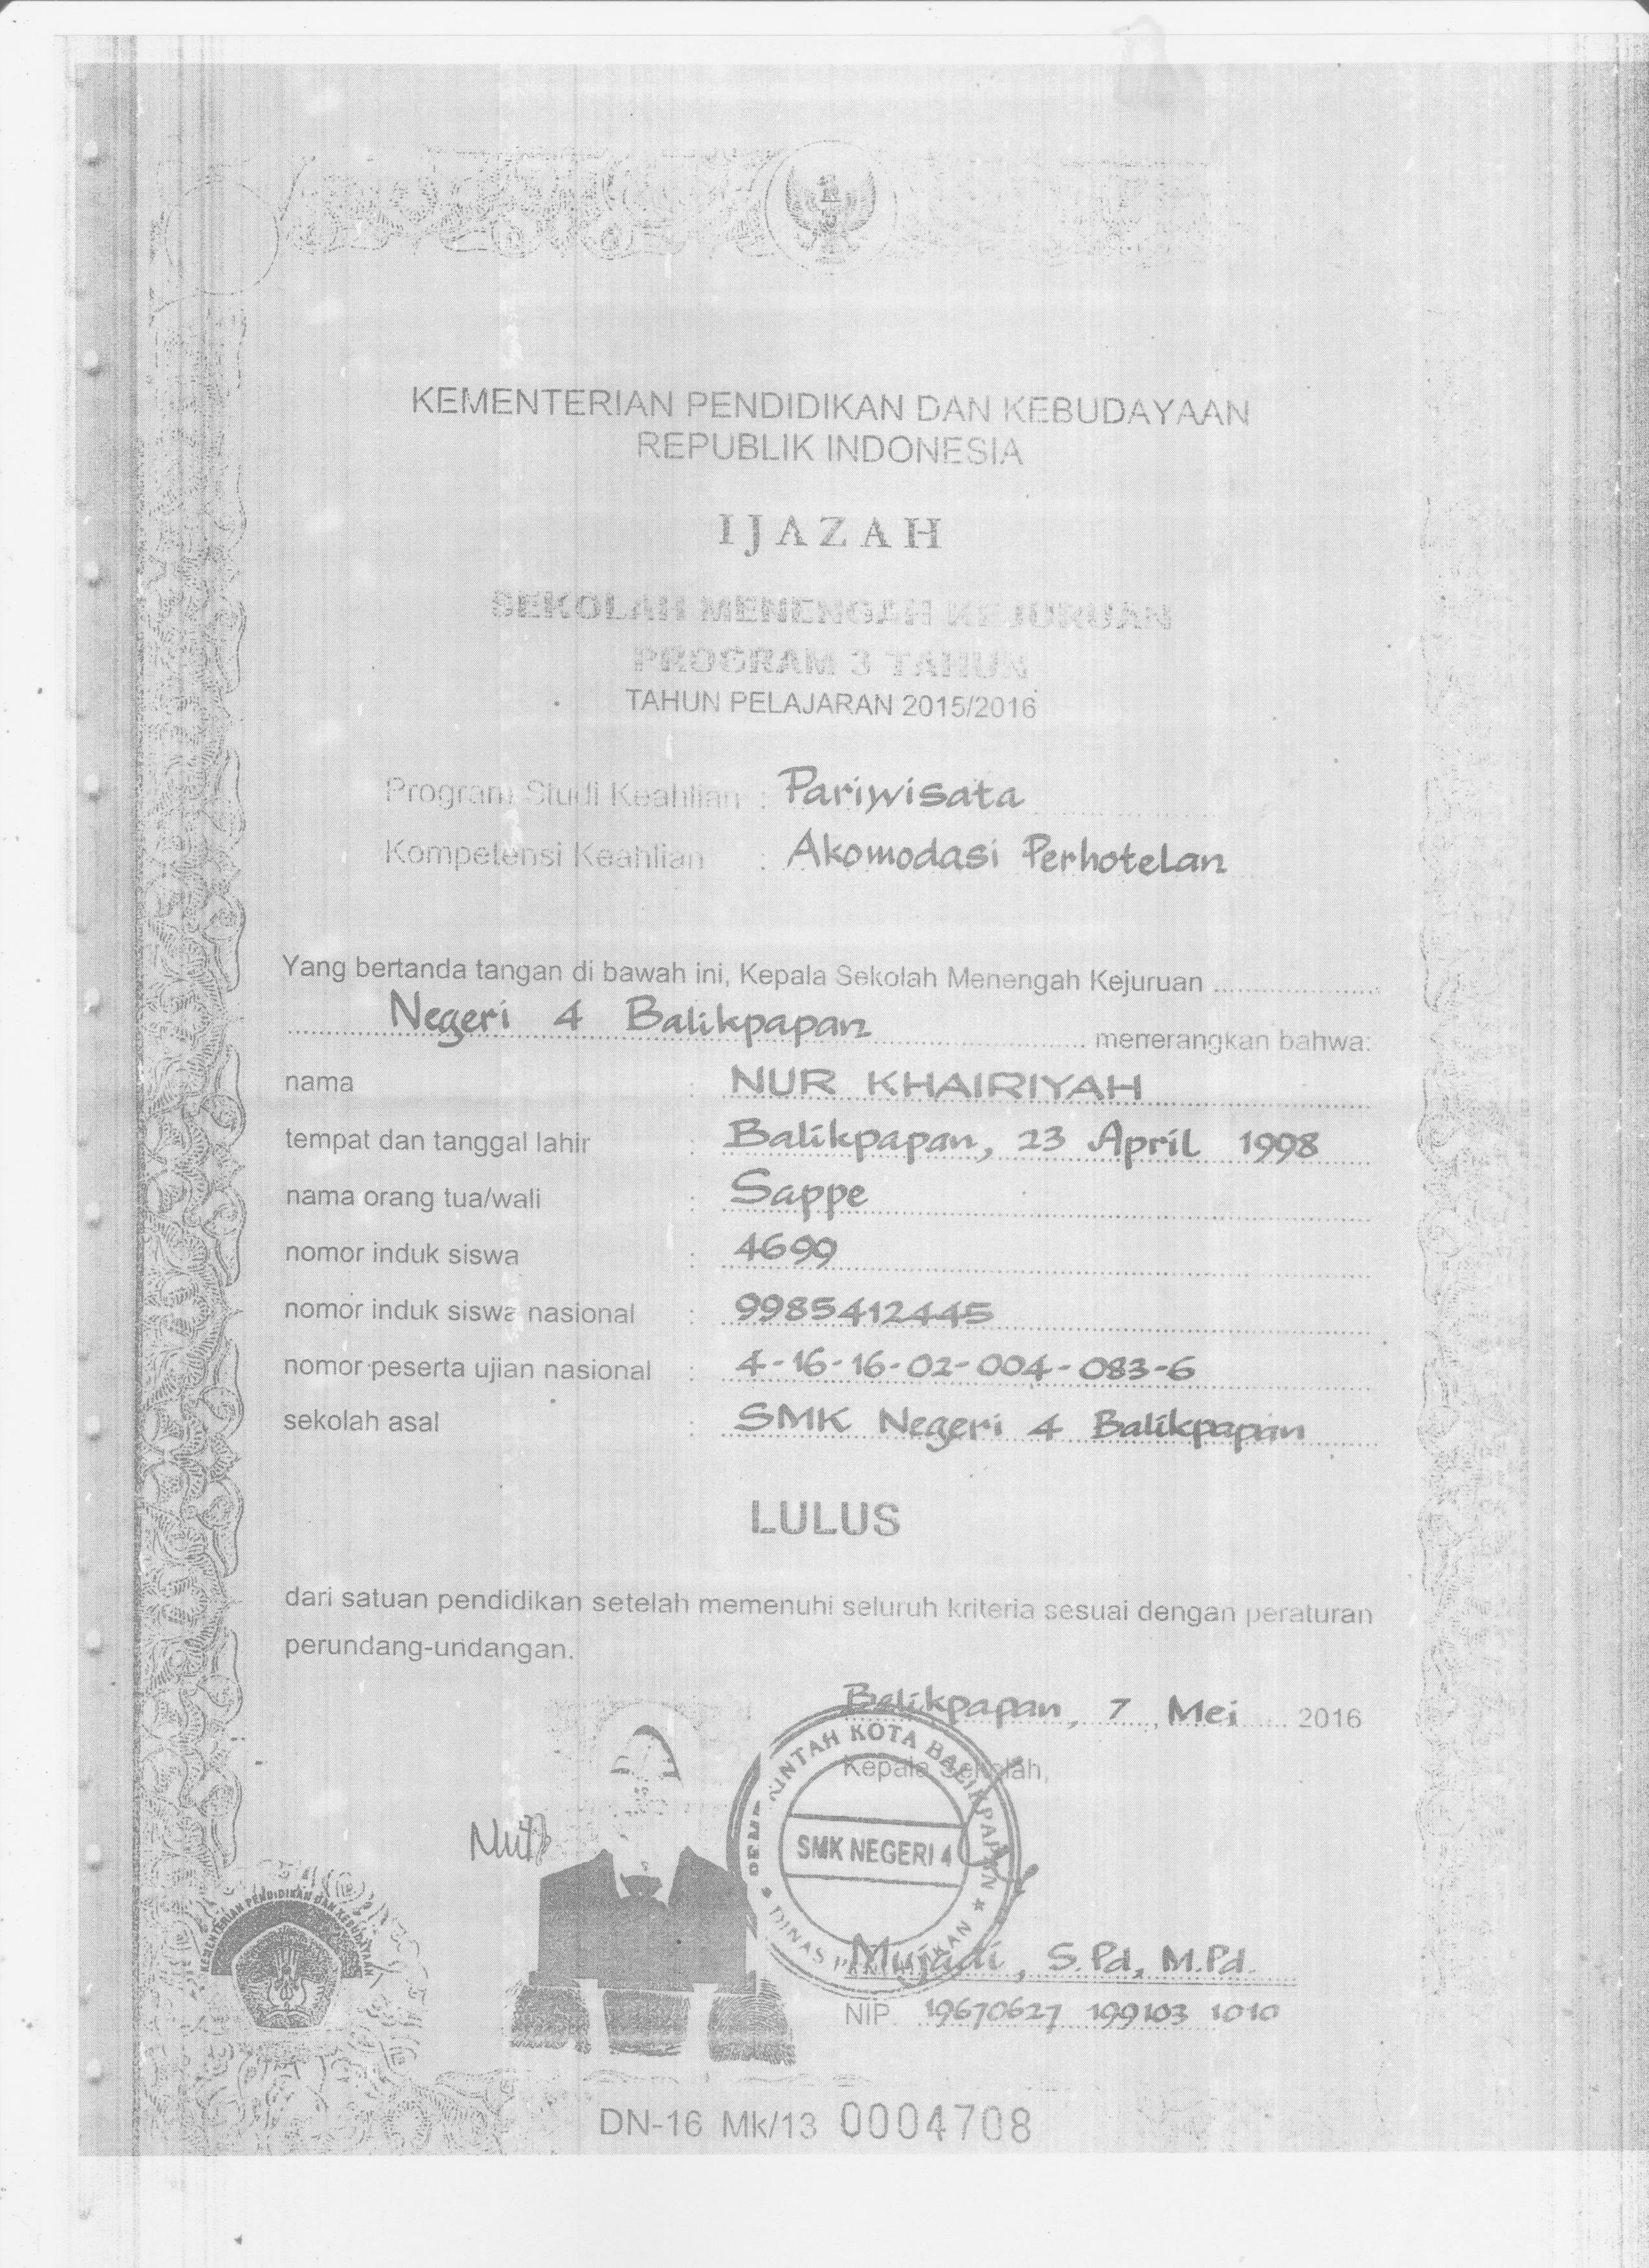 KEMENTERIAN PENDIDIKAN DAN KEBUDAYAAN
REPUBLIK INDONESIA
IJAZAH
SEKOLAH MENENGAH KEJURUAN
PROGRAM 3 TAHUN
TAHUN PELAJARAN 2015/2016
Program Studi Keahlian : Pariwisata
Kompetensi Keahlian : Akomodasi Perhotelan
Yang bertanda tangan di bawah ini, Kepala Sekolah Menengah Kejuruan
Negeri 4 Balikpapan menerangkan bahwa:
nama : NUR KHAIRIYAH
tempat dan tanggal lahir : Balikpapan, 23 April 1998
nama orang tua/wali : Sappe
nomor induk siswa : 4699
nomor induk siswa nasional : 9985412445
nomor peserta ujian nasional : 4-16-16-02-004-083-6
sekolah asal : SMK Negeri 4 Balikpapan
LULUS
dari satuan pendidikan setelah memenuhi seluruh kriteria sesuai dengan peraturan
perundang-undangan.
Balikpapan, 7 Mei 2016
Kepala Sekolah,
PEMERINTAH KOTA BALIKPAPAN
SMK NEGERI 4
DINAS PENDIDIKAN
KEMENTERIAN PENDIDIKAN DAN KEBUDAYAAN
Mujadi, S.Pd, M.Pd.
NIP. 19670627 199103 1010
DN-16 Mk/13 0004708